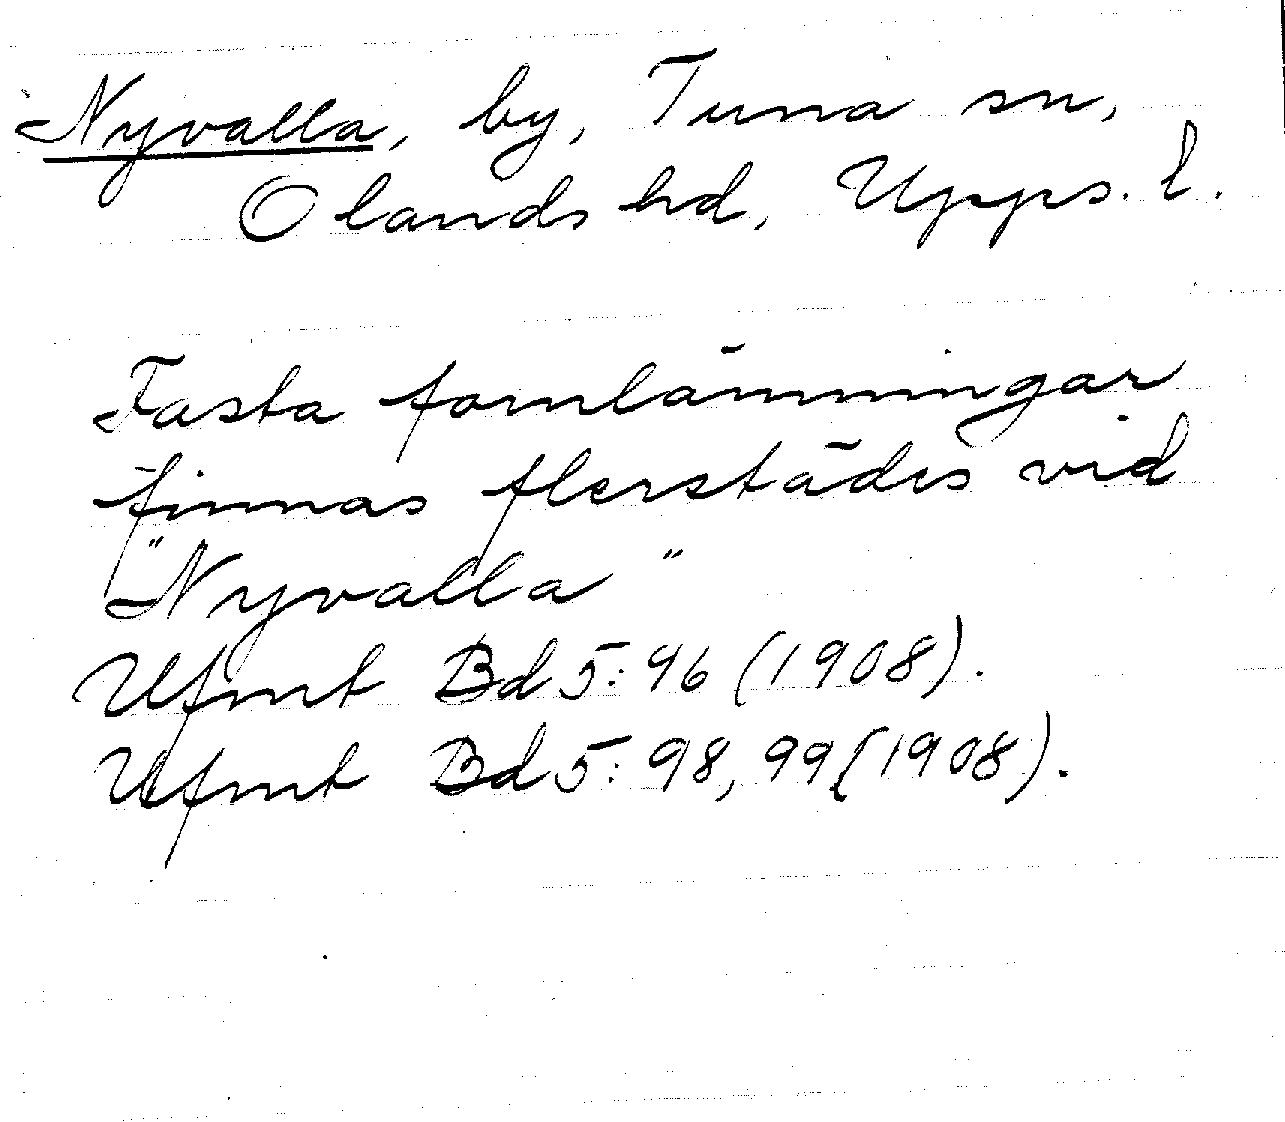 Nyvalla, by, Tuna sn,
Olands hd, Upps. l.
Fasta fornlämningar
finnas flerstädes vid
"Nyvalla"
Ufmt Bd 5: 96 (1908).
Ufmt Bd 5: 98, 99 (1908).